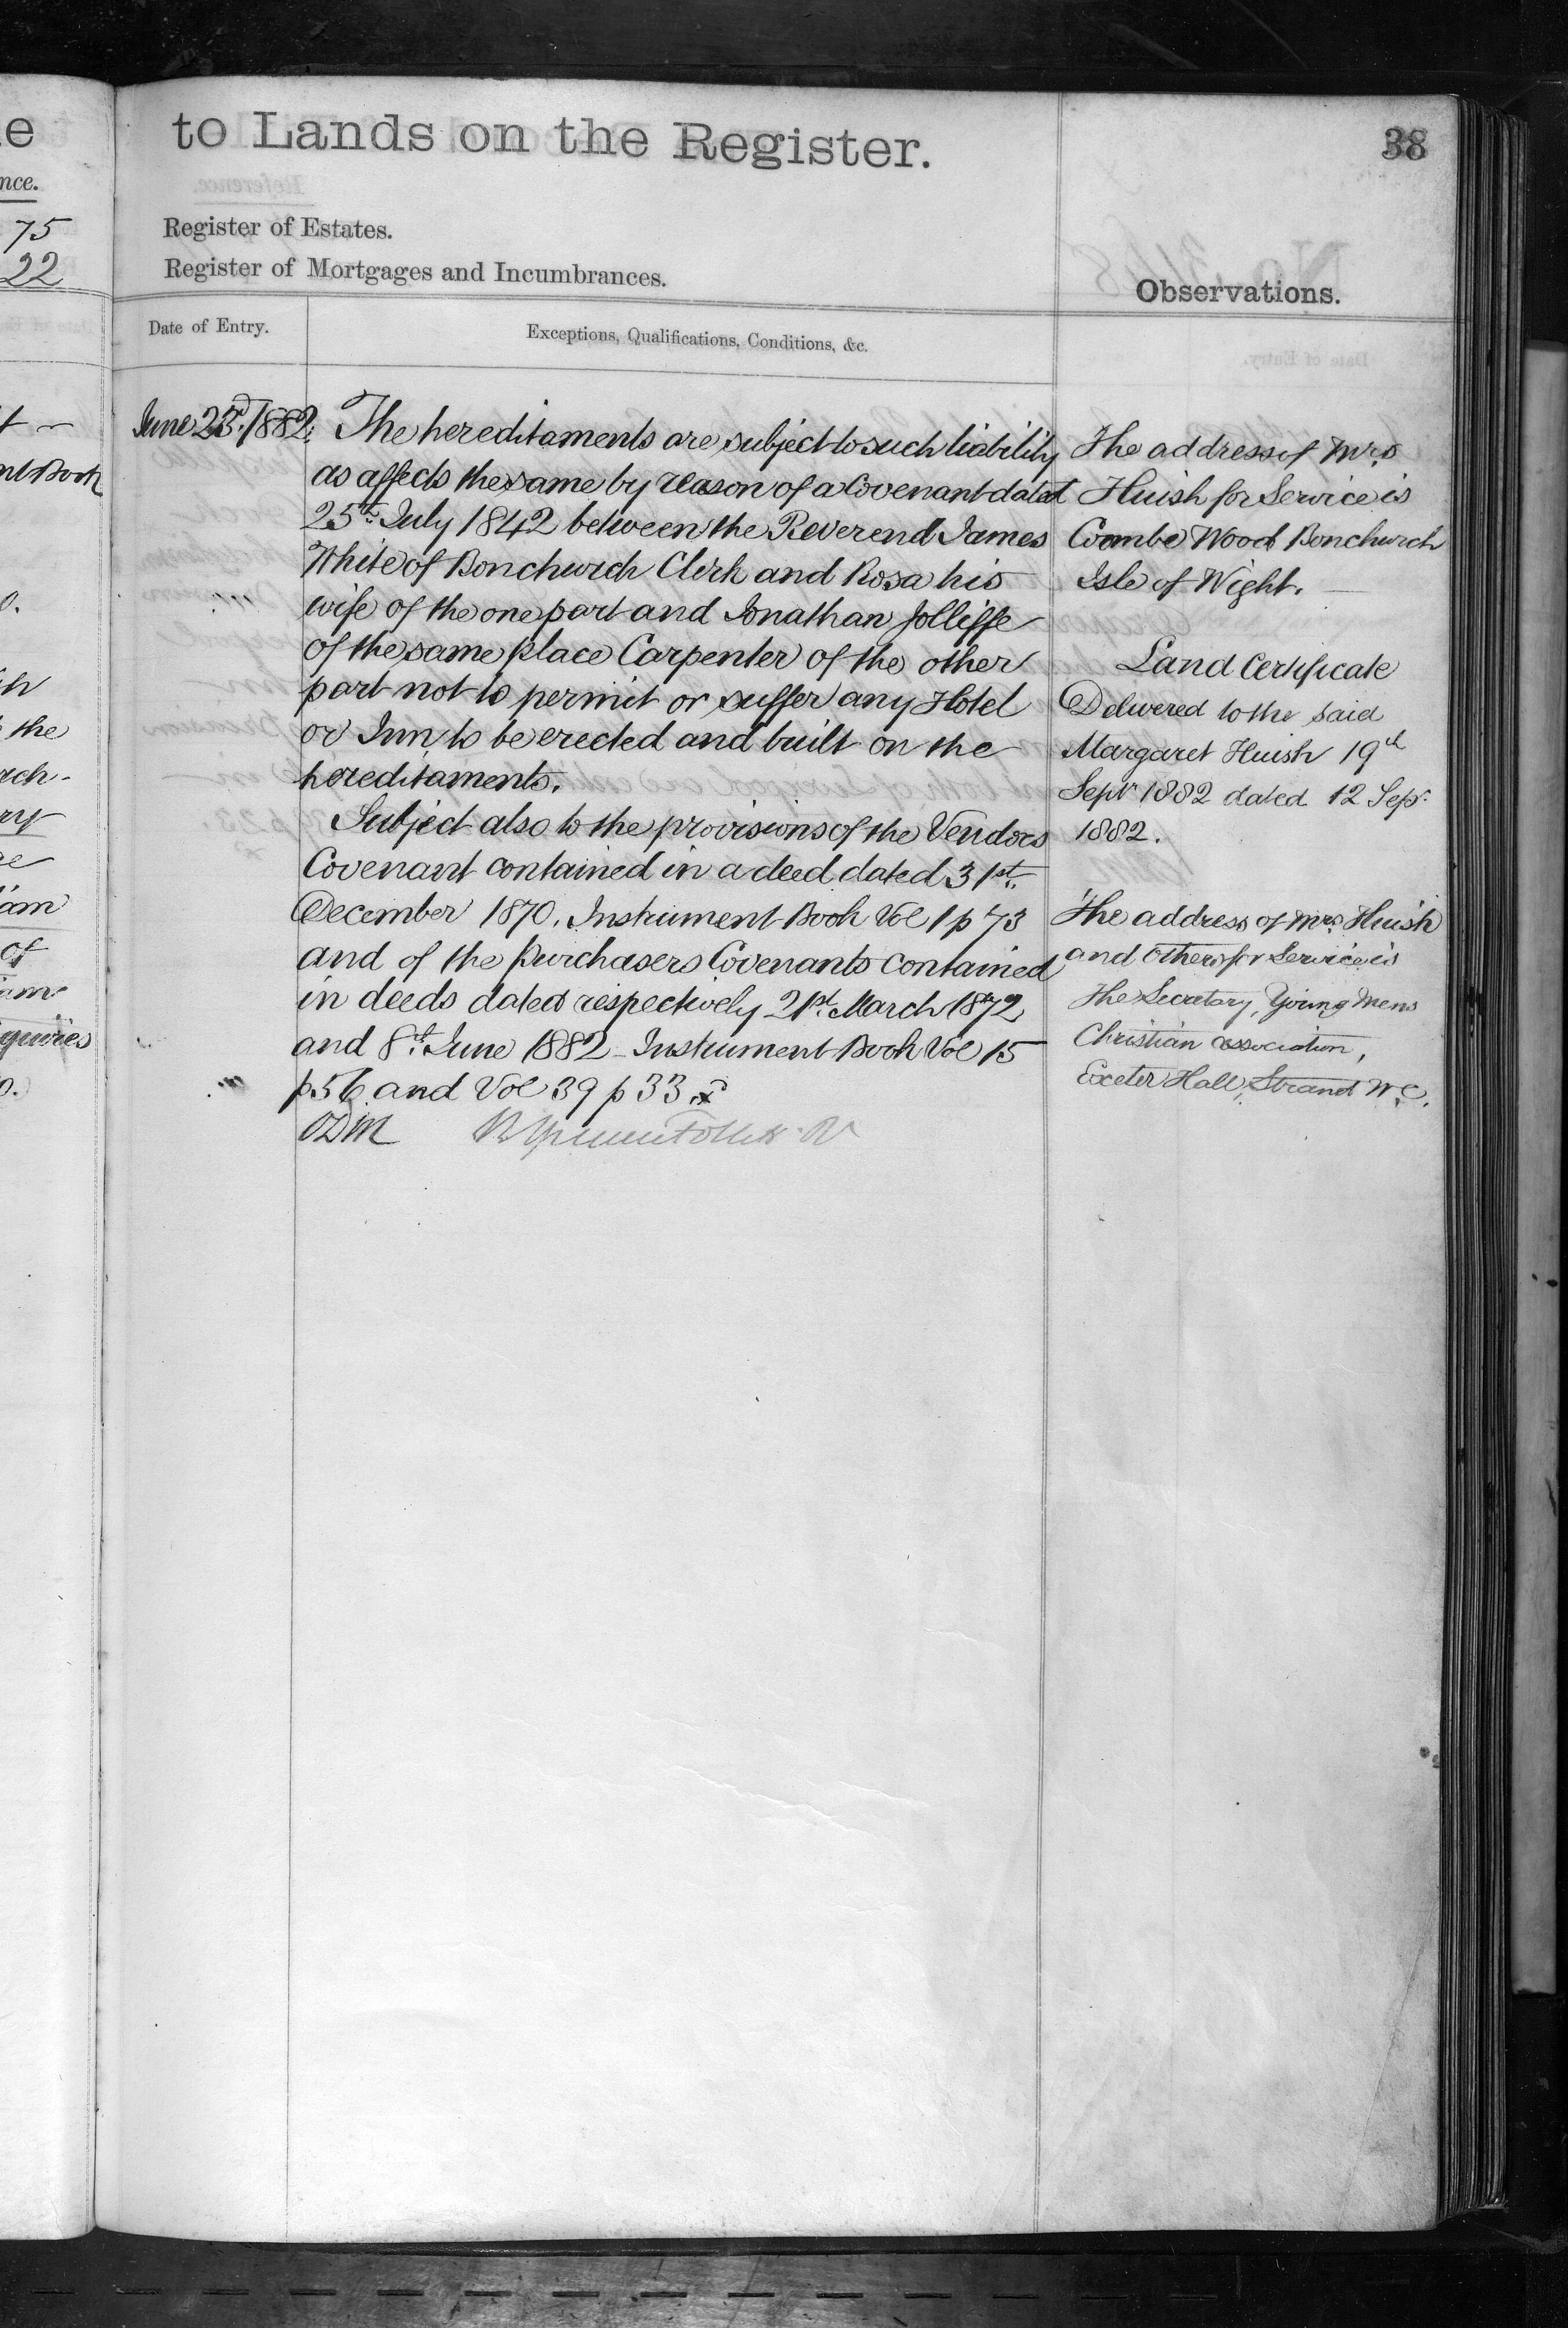 to Lands on the Register.
38
Register of Estates.
Register of Mortgages and Incumbrances.
Observations.
Date of Entry.
Exceptions, Qualifications, Conditions, &c.
June 23rd 1882.
The hereditaments are subject to such liability
as affects the same by reason of a Covenant dated
25th July 1842 between the Reverend James
White of Bonchurch Clerk and Rosa his
wife of the one part and Jonathan Jolliffe
of the same place Carpenter of the other
part not to permit or suffer any Hotel
or Inn, to be erected and built on the
hereditaments.
Subject also to the provisions of the Vendors
Covenant contained in a deed dated 31st
December 1870. Instrument Book Vol 1 p 73
and of the Purchasers Covenants contained
in deeds dated respectively 21st March 1872
and 8th June 1882 - Instrument Book Vol 15
p 56 and Vol 39 p 33.
The address of Mrs
Huish for Service is
Coombe Wood Bonchurch
Isle of Wight.
Land Certificate
Delivered to the said
Margaret Huish 19th
Sepr 1882 dated 12 Sepr
1882.
The address of Mrs Huish
and others for Service is
The Secretary, Young Mens
Christian Association,
Exeter Hall, Strand W.C.
nce.
75
22
the
of